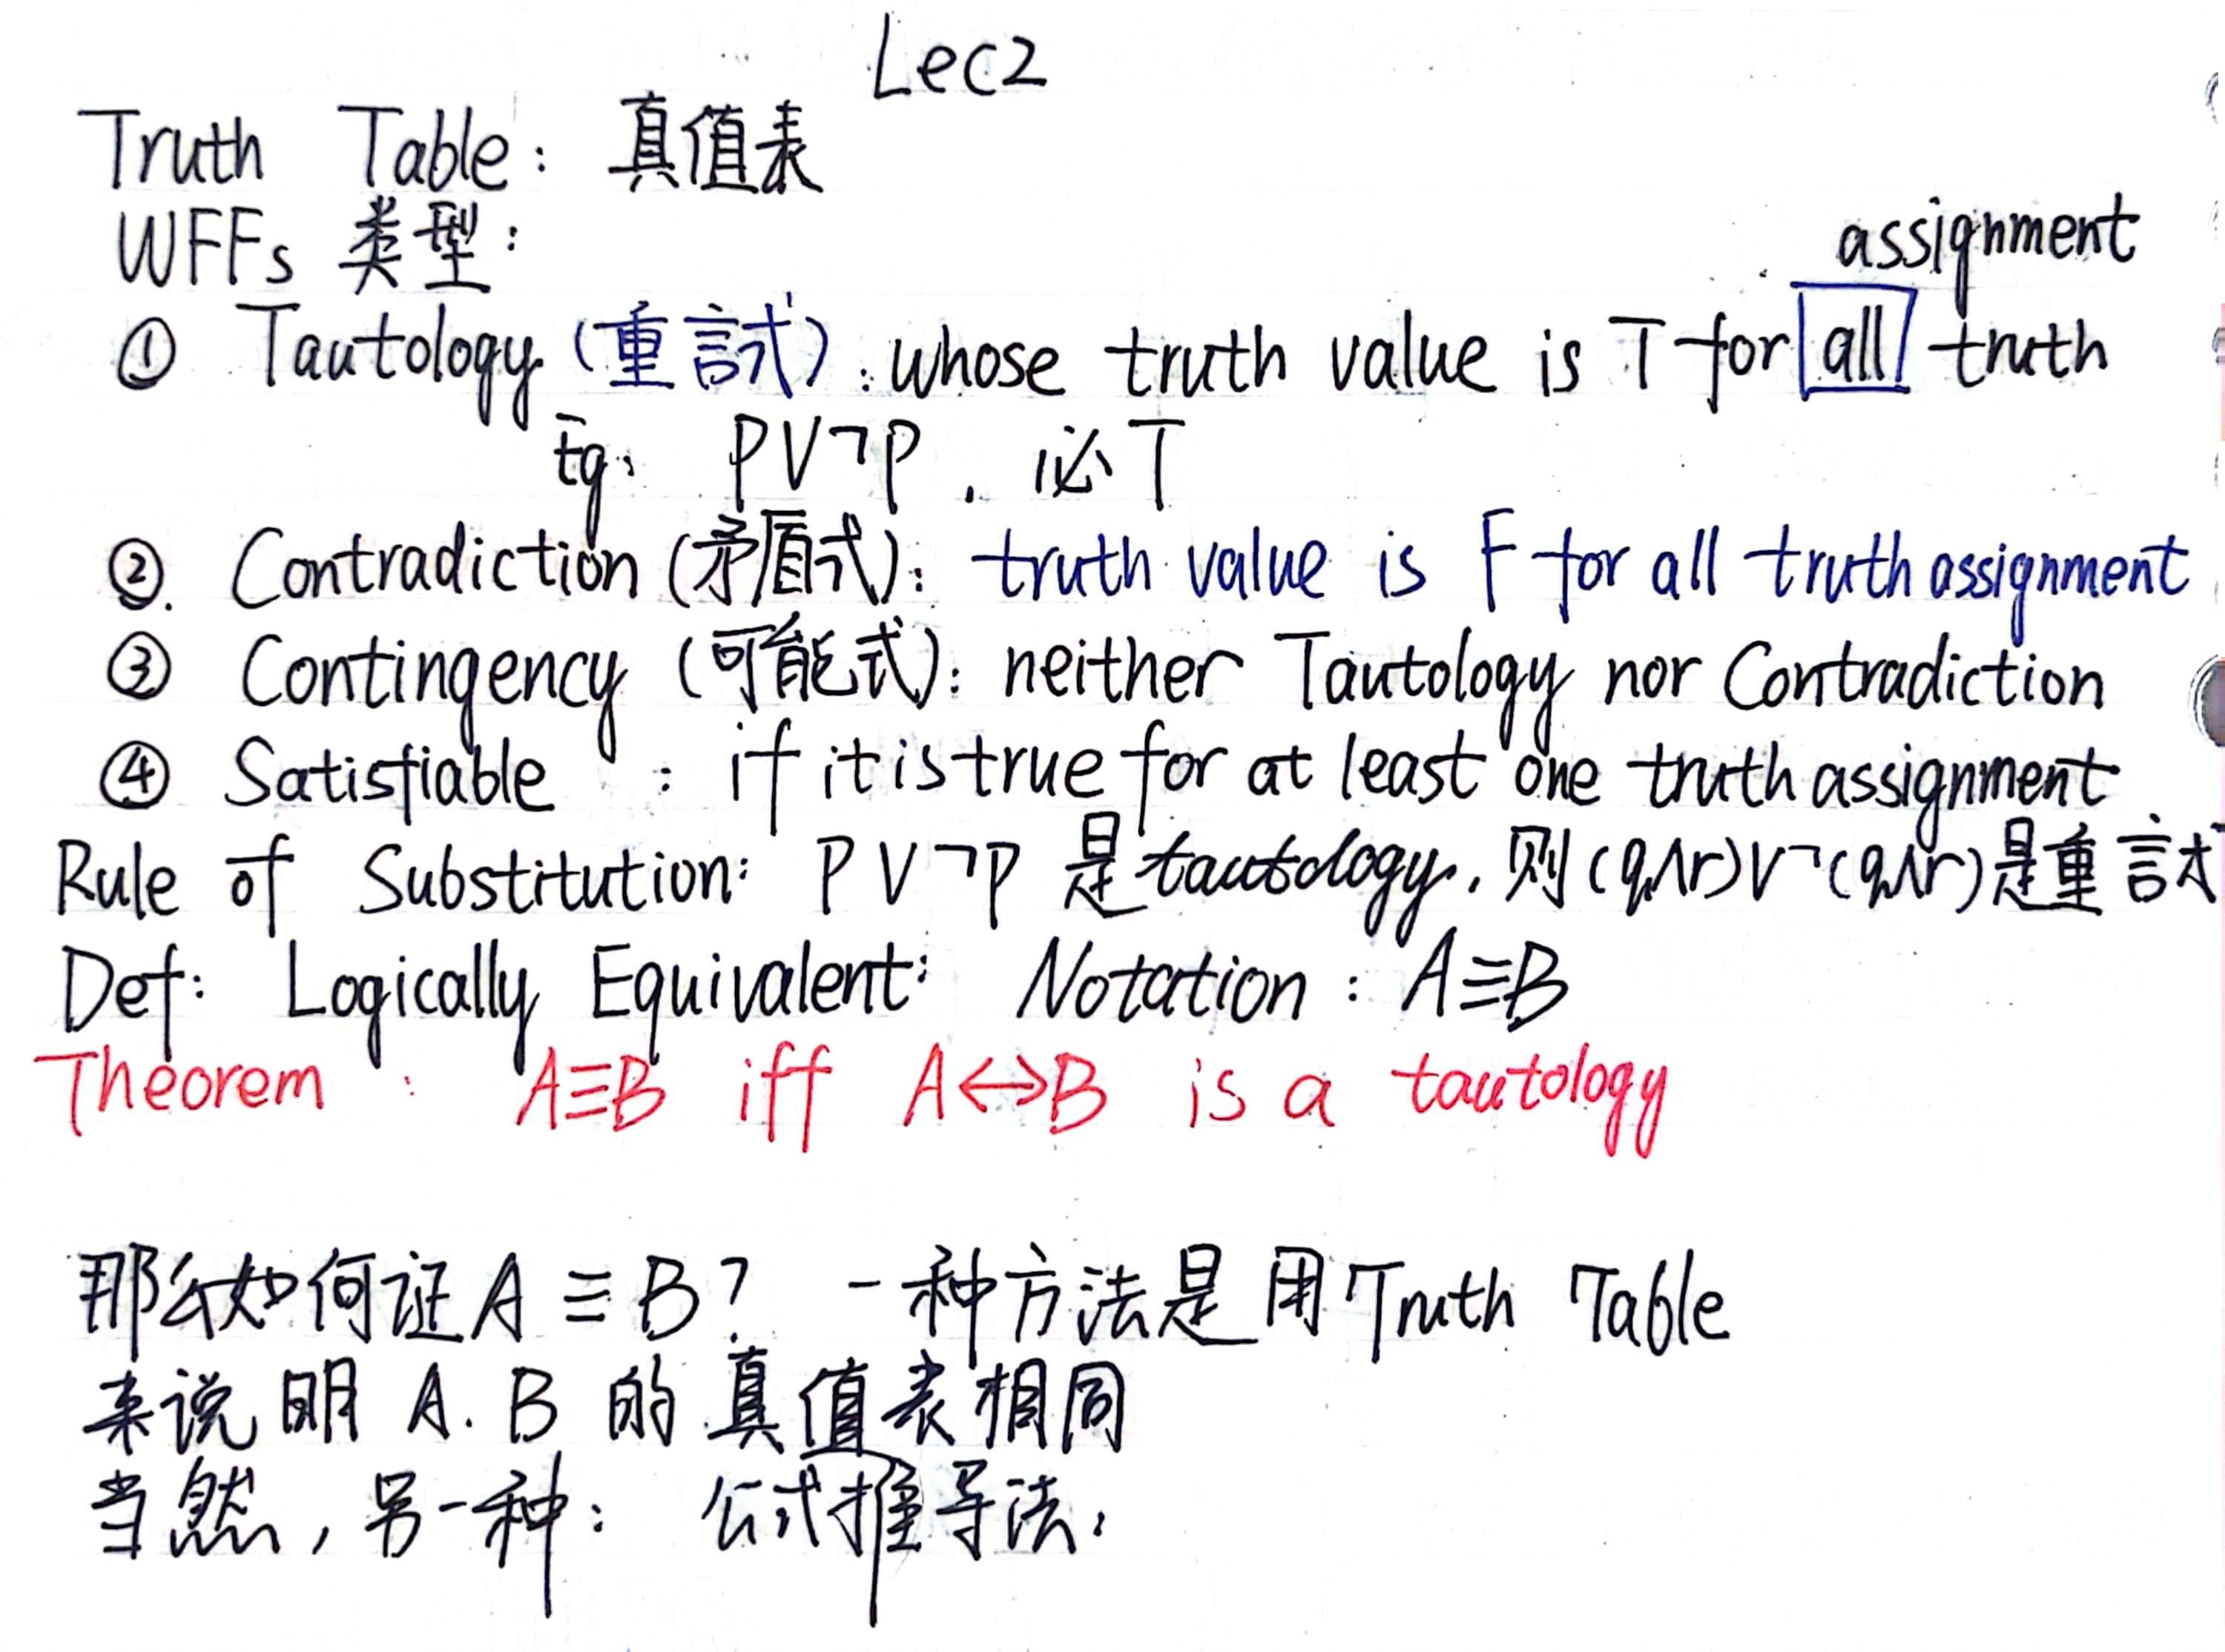 Lec2
Truth Table: 真值表
WFFs 类型:
assignment
① Tautology (重言式): whose truth value is T for all truth
Eg: P∨¬P. 必T
②. Contradiction (矛盾式): truth value is F for all truth assignment
③ Contingency (可能式): neither Tautology nor Contradiction
④ Satisfiable : if it is true for at least one truth assignment
Rule of Substitution: P∨¬P 是tautology, 则(q∧r)∨¬(q∧r)是重言式
Def: Logically Equivalent: Notation: A≡B
Theorem: A≡B iff A↔B is a tautology
那么如何证A≡B? 一种方法是用Truth Table
来说明 A. B 的真值表相同
当然,另一种: 公式推导法.